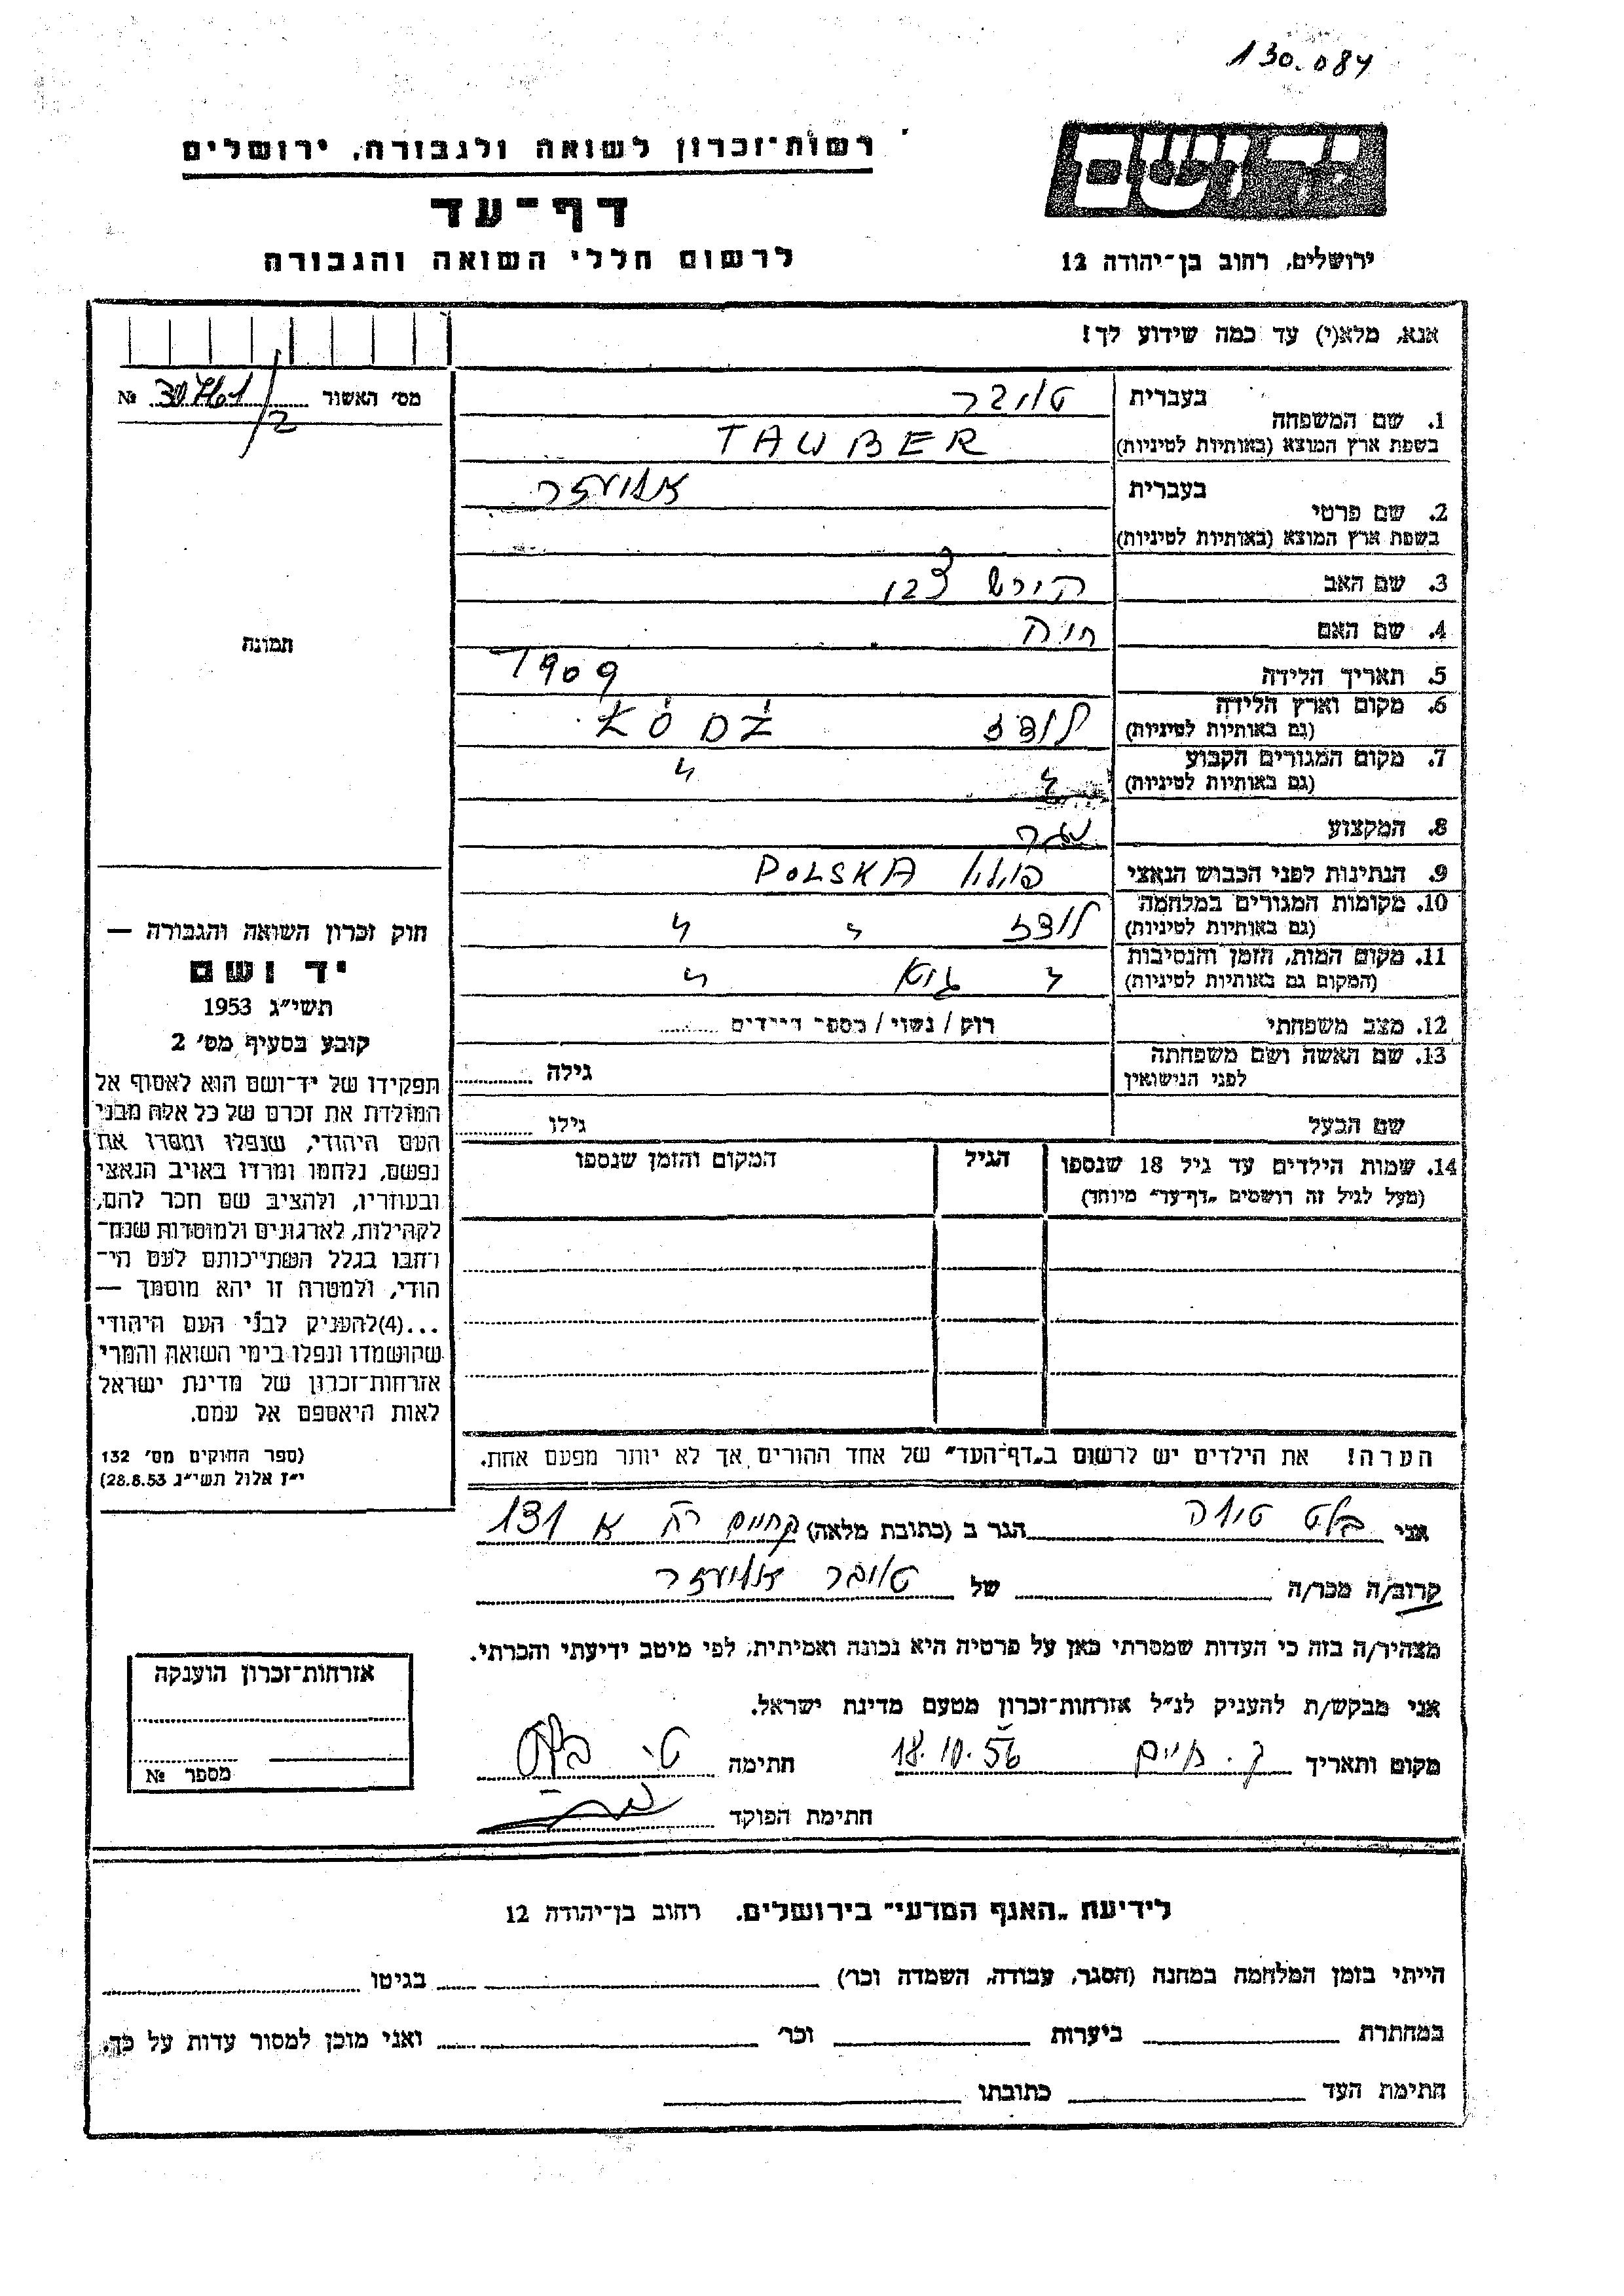 130.084
רשות־זכרון לשואה ולגבורה, ירושלים
דף־עד
לרשום חללי השואה והגבורה
יד ושם
ירושלים, רחוב בן־יהודה 12
אנא, מלא(י) עד כמה שידוע לך!
מס׳ האשור № 30761/2
תמונה
1. שם המשפחה
בעברית טאובר
בשפת ארץ המוצא (באותיות לטיניות) TAUBER
2. שם פרטי
בעברית אליעזר
בשפת ארץ המוצא (באותיות לטיניות)
3. שם האב הירש
4. שם האם חיה
5. תאריך הלידה 1909
6. מקום וארץ הלידה לודז ŁÓDŹ
(גם באותיות לטיניות)
7. מקום המגורים הקבוע " "
(גם באותיות לטיניות)
8. המקצוע
9. הנתינות לפני הכבוש הנאצי פולין POLSKA
10. מקומות המגורים במלחמה לודז " "
(גם באותיות לטיניות)
11. מקום המות, הזמן והנסיבות " גיטו "
(המקום גם באותיות לטיניות)
12. מצב משפחתי רוק / נשוי / מספר הילדים
13. שם האשה ושם משפחתה גילה
לפני הנישואין
שם הבעל גילו
14. שמות הילדים עד גיל 18 שנספו הגיל המקום והזמן שנספו
(מעל לגיל זה רושמים „דף־עד״ מיוחד)
הערה! את הילדים יש לרשום ב„דף־העד״ של אחד ההורים אך לא יותר מפעם אחת.
חוק זכרון השואה והגבורה —
יד ושם
תשי״ג 1953
קובע בסעיף מס׳ 2
תפקידו של יד־ושם הוא לאסוף אל
המולדת את זכרם של כל אלה מבני
העם היהודי, שנפלו ומסרו את
נפשם, נלחמו ומרדו באויב הנאצי
ובעוזריו, ולהציב שם וזכר להם,
לקהילות, לארגונים ולמוסדות שנח־
רבו בגלל השתייכותם לעם הי־
הודי, ולמטרה זו יהא מוסמך —
...(4)להעניק לבני העם היהודי
שהושמדו ונפלו בימי השואה והמרי
אזרחות־זכרון של מדינת ישראל
לאות היאספם אל עמם.
(ספר החוקים מס׳ 132
י״ז אלול תשי״ג 28.8.53)
אני בלט טובה הגר ב (כתובת מלאה) ק חיים רח א 131
קרוב/ה מכר/ה של טאובר אליעזר
מצהיר/ה בזה כי העדות שמסרתי כאן על פרטיה היא נכונה ואמיתית, לפי מיטב ידיעתי והכרתי.
אני מבקש/ת להעניק לנ״ל אזרחות־זכרון מטעם מדינת ישראל.
מקום ותאריך ק. חיים 18.10.56 חתימה ט. בלט
חתימת הפוקד
אזרחות־זכרון הוענקה
מספר №
לידיעת „האגף המדעי״ בירושלים. רחוב בן־יהודה 12
הייתי בזמן המלחמה במחנה (הסגר, עבודה, השמדה וכר׳) בגיטו
במחתרת ביערות וכר׳ ואני מוכן למסור עדות על כך.
חתימת העד כתובתו